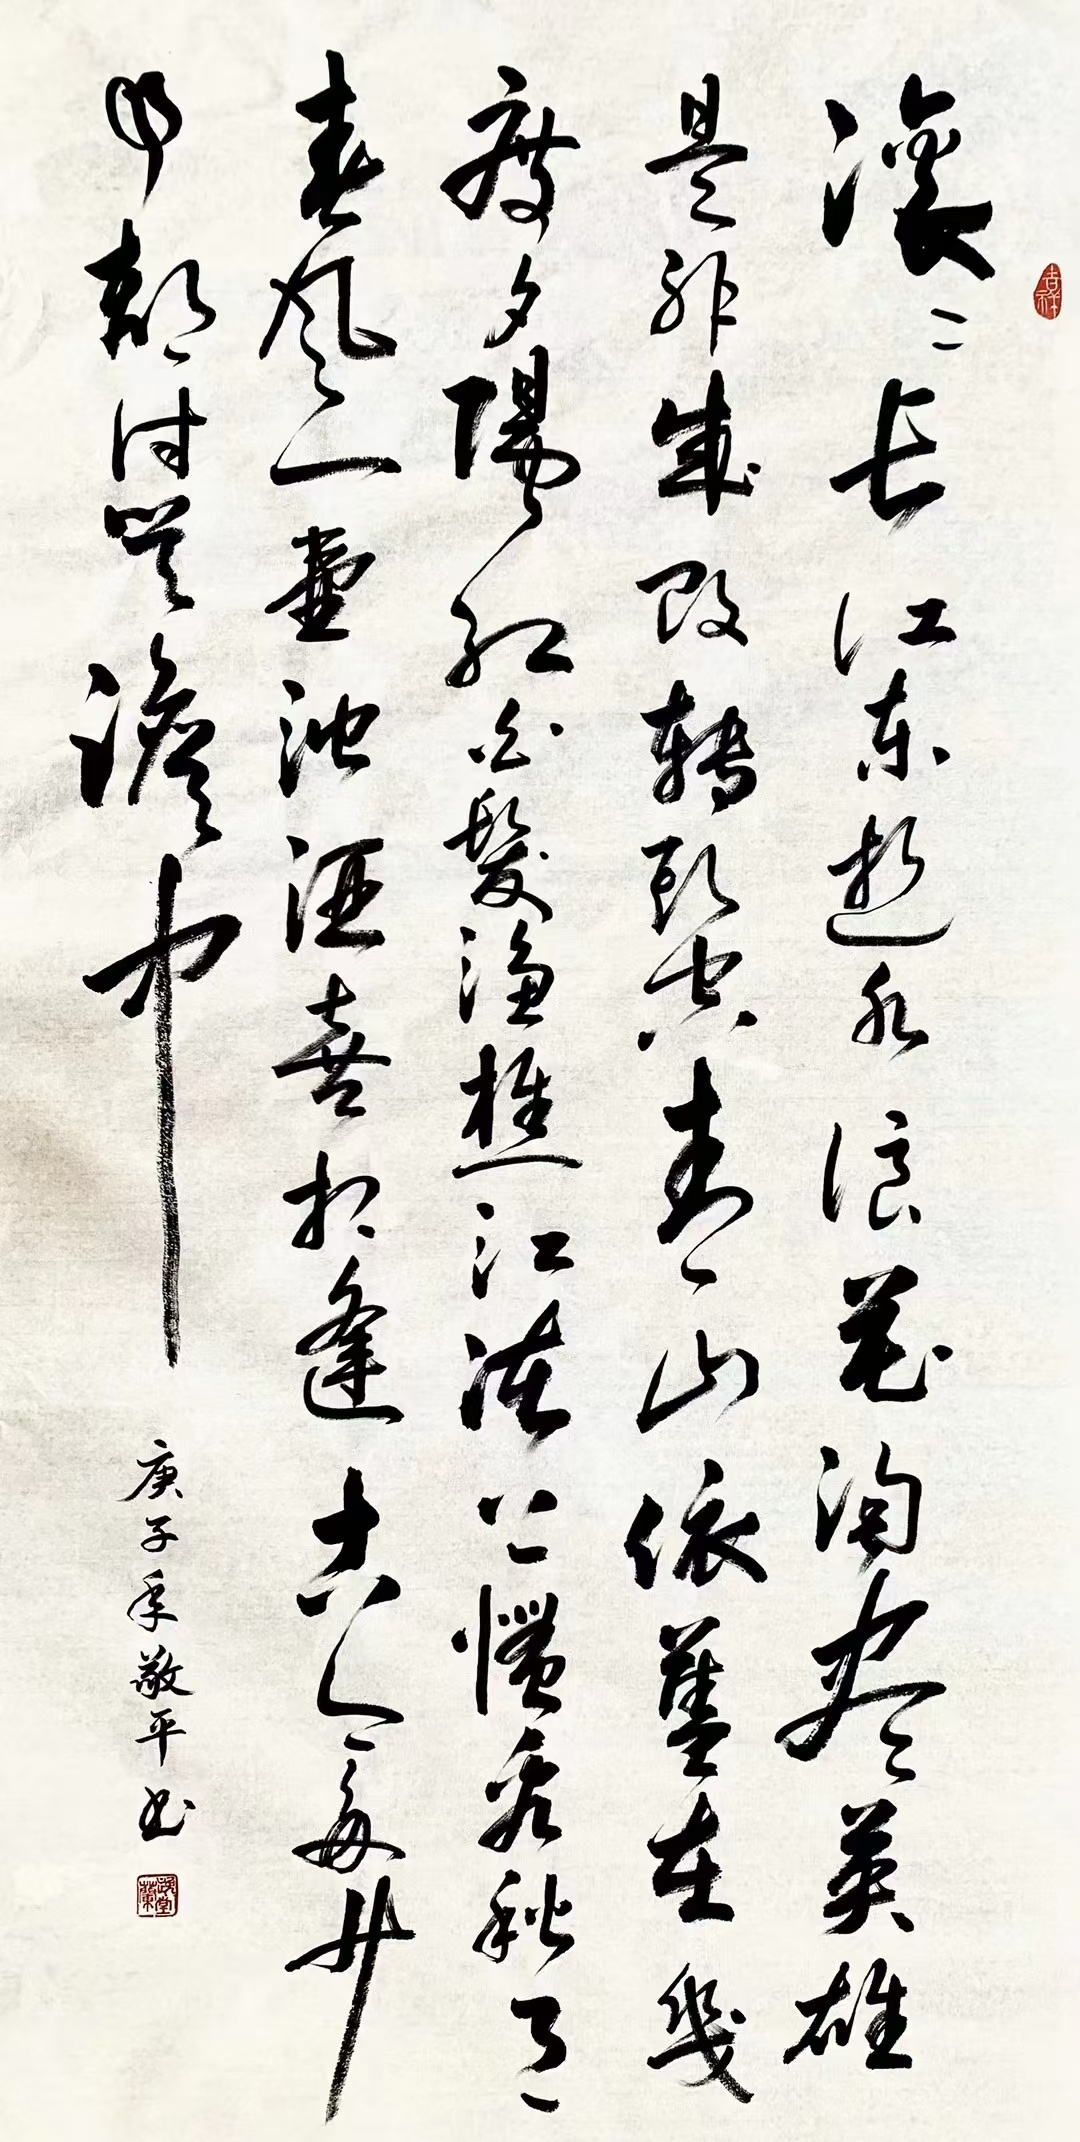 吉祥
滚滚长江东逝水浪花淘尽英雄
是非成敗轉头空青山依舊在幾
度夕陽红白髮漁樵江渚上慣看秋月
春风一壶浊酒喜相逢古今多少
事都付笑談中
庚子年敬平书